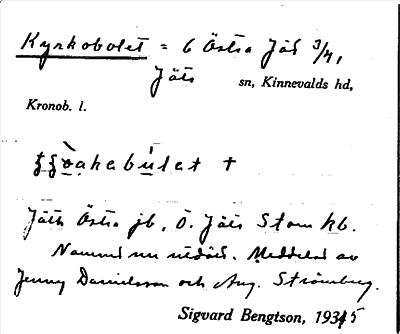 Kyrkobolet = 6 Östra Jät 3/4,
Jäts sn, Kinnevalds hd,
Kronob. l.
Jäts Östra jb, Ö. Jäts Stom kb.
Namnet nu utdött. Meddelad av
Jenny Danielsson och Aug. Strömberg.
Sigvard Bengtson, 1935